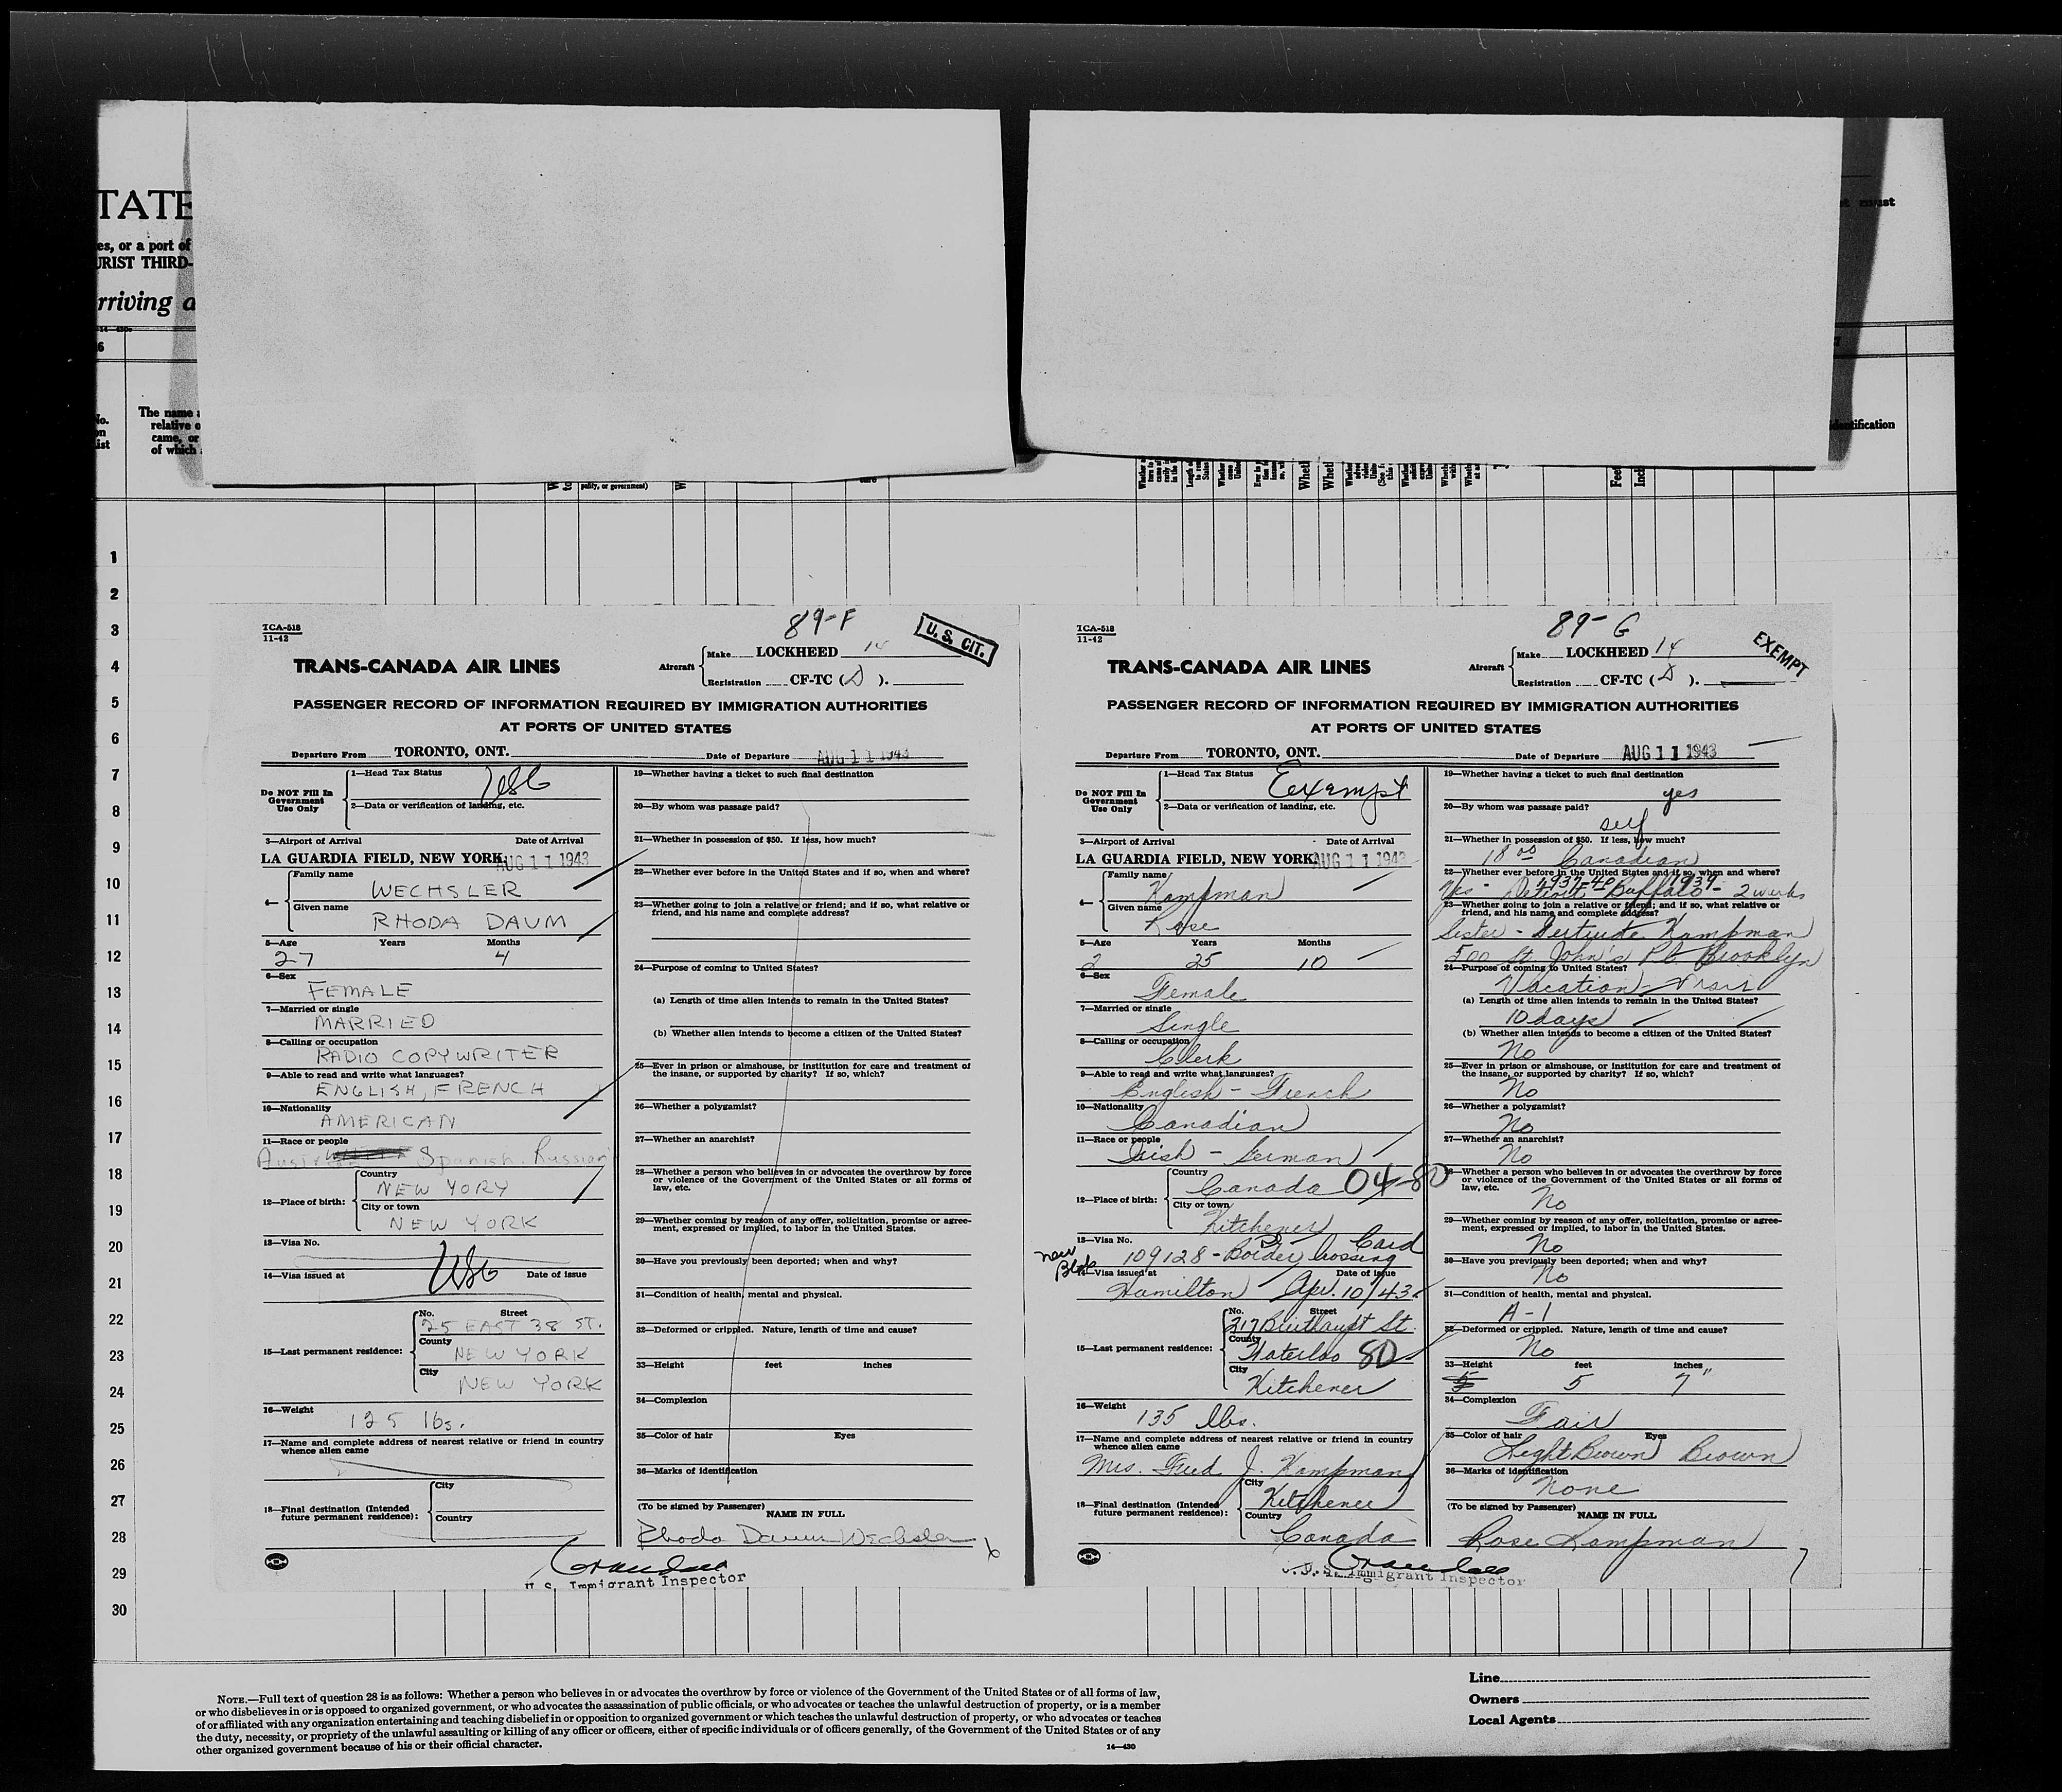 TATE
es, or a port of
URIST THIRD-
rriving a
6
No.
on
ist
The name a
relative o
came, or
of which
pality, or government)
must
dentification
Feet
1
2
3
4
5
6
7
8
9
10
11
12
13
14
15
16
17
18
19
20
21
22
23
24
25
26
27
28
29
30
TCA-518
11-42
89-F
U. S. CIT.
TRANS-CANADA AIR LINES
Aircraft
Make LOCKHEED 14
Registration CF-TC (D).
PASSENGER RECORD OF INFORMATION REQUIRED BY IMMIGRATION AUTHORITIES
AT PORTS OF UNITED STATES
Departure From TORONTO, ONT. Date of Departure AUG 11 1943
Do NOT Fill In
Government
Use Only
1—Head Tax Status USC
2—Data or verification of landing, etc.
3—Airport of Arrival Date of Arrival
LA GUARDIA FIELD, NEW YORK AUG 11 1943
4—
Family name
WECHSLER
Given name
RHODA DAUM
5—Age Years Months
27 4
6—Sex
FEMALE
7—Married or single
MARRIED
8—Calling or occupation
RADIO COPYWRITER
9—Able to read and write what languages?
ENGLISH, FRENCH
10—Nationality
AMERICAN
11—Race or people
Spanish. Russian
12—Place of birth:
Country
NEW YORY
City or town
NEW YORK
13—Visa No.
USC
14—Visa issued at Date of issue
15—Last permanent residence:
No. Street
25 EAST 38 ST.
County
NEW YORK
City
NEW YORK
16—Weight
125 lbs.
17—Name and complete address of nearest relative or friend in country
whence alien came
18—Final destination (Intended
future permanent residence):
City
Country
19—Whether having a ticket to such final destination
20—By whom was passage paid?
21—Whether in possession of $50. If less, how much?
22—Whether ever before in the United States and if so, when and where?
23—Whether going to join a relative or friend; and if so, what relative or
friend, and his name and complete address?
24—Purpose of coming to United States?
(a) Length of time alien intends to remain in the United States?
(b) Whether alien intends to become a citizen of the United States?
25—Ever in prison or almshouse, or institution for care and treatment of
the insane, or supported by charity? If so, which?
26—Whether a polygamist?
27—Whether an anarchist?
28—Whether a person who believes in or advocates the overthrow by force
or violence of the Government of the United States or all forms of
law, etc.
29—Whether coming by reason of any offer, solicitation, promise or agree-
ment, expressed or implied, to labor in the United States.
30—Have you previously been deported; when and why?
31—Condition of health, mental and physical.
32—Deformed or crippled. Nature, length of time and cause?
33—Height feet inches
34—Complexion
35—Color of hair Eyes
36—Marks of identification
(To be signed by Passenger)
NAME IN FULL
Rhoda Daum Wechsler
6
U.S. Immigrant Inspector
TCA-518
11-42
89-G
EXEMPT
TRANS-CANADA AIR LINES
Aircraft
Make LOCKHEED 14
Registration CF-TC (D).
PASSENGER RECORD OF INFORMATION REQUIRED BY IMMIGRATION AUTHORITIES
AT PORTS OF UNITED STATES
Departure From TORONTO, ONT. Date of Departure AUG 11 1943
Do NOT Fill In
Government
Use Only
1—Head Tax Status Exempt
2—Data or verification of landing, etc.
3—Airport of Arrival Date of Arrival
LA GUARDIA FIELD, NEW YORK AUG 11 1943
4—
Family name
Kampman
Given name
Rose
5—Age Years Months
2 25 10
6—Sex
Female
7—Married or single
Single
8—Calling or occupation
Clerk
9—Able to read and write what languages?
English - French
10—Nationality
Canadian
11—Race or people
Irish - German
12—Place of birth:
Country
Canada 04-80
City or town
Kitchener
13—Visa No.
109128 - Border Crossing Card
new
14—Visa issued at Date of issue
Hamilton - Apr. 10/43
15—Last permanent residence:
No. Street
217 Breithaupt St.
County
Waterloo 80
City
Kitchener
16—Weight
135 lbs.
17—Name and complete address of nearest relative or friend in country
whence alien came
Mrs. Fred J. Kampman
18—Final destination (Intended
future permanent residence):
City
Kitchener
Country
Canada
19—Whether having a ticket to such final destination
yes
20—By whom was passage paid?
self
21—Whether in possession of $50. If less, how much?
18.00 Canadian
22—Whether ever before in the United States and if so, when and where?
1937-40 1939
Yes - Detroit - Buffalo - 2 weeks
23—Whether going to join a relative or friend; and if so, what relative or
friend, and his name and complete address?
Sister - Gertrude Kampman
500 St. John's Pl. Brooklyn
24—Purpose of coming to United States?
Vacation - Visit
(a) Length of time alien intends to remain in the United States?
10 days
(b) Whether alien intends to become a citizen of the United States?
No
25—Ever in prison or almshouse, or institution for care and treatment of
the insane, or supported by charity? If so, which?
No
26—Whether a polygamist?
No
27—Whether an anarchist?
No
28—Whether a person who believes in or advocates the overthrow by force
or violence of the Government of the United States or all forms of
law, etc.
No
29—Whether coming by reason of any offer, solicitation, promise or agree-
ment, expressed or implied, to labor in the United States.
No
30—Have you previously been deported; when and why?
No
31—Condition of health, mental and physical.
A-1
32—Deformed or crippled. Nature, length of time and cause?
No
33—Height feet inches
5 7"
34—Complexion
Fair
35—Color of hair Eyes
Light Brown Brown
36—Marks of identification
None
(To be signed by Passenger)
NAME IN FULL
Rose Kampman
7
U.S. Immigrant Inspector
NOTE.—Full text of question 28 is as follows: Whether a person who believes in or advocates the overthrow by force or violence of the Government of the United States or of all forms of law,
or who disbelieves in or is opposed to organized government, or who advocates the assassination of public officials, or who advocates or teaches the unlawful destruction of property, or is a member
of or affiliated with any organization entertaining and teaching disbelief in or opposition to organized government or which teaches the unlawful destruction of property, or who advocates or teaches
the duty, necessity, or propriety of the unlawful assaulting or killing of any officer or officers, either of specific individuals or of officers generally, of the Government of the United States or of any
other organized government because of his or their official character.
14—430
Line
Owners
Local Agents